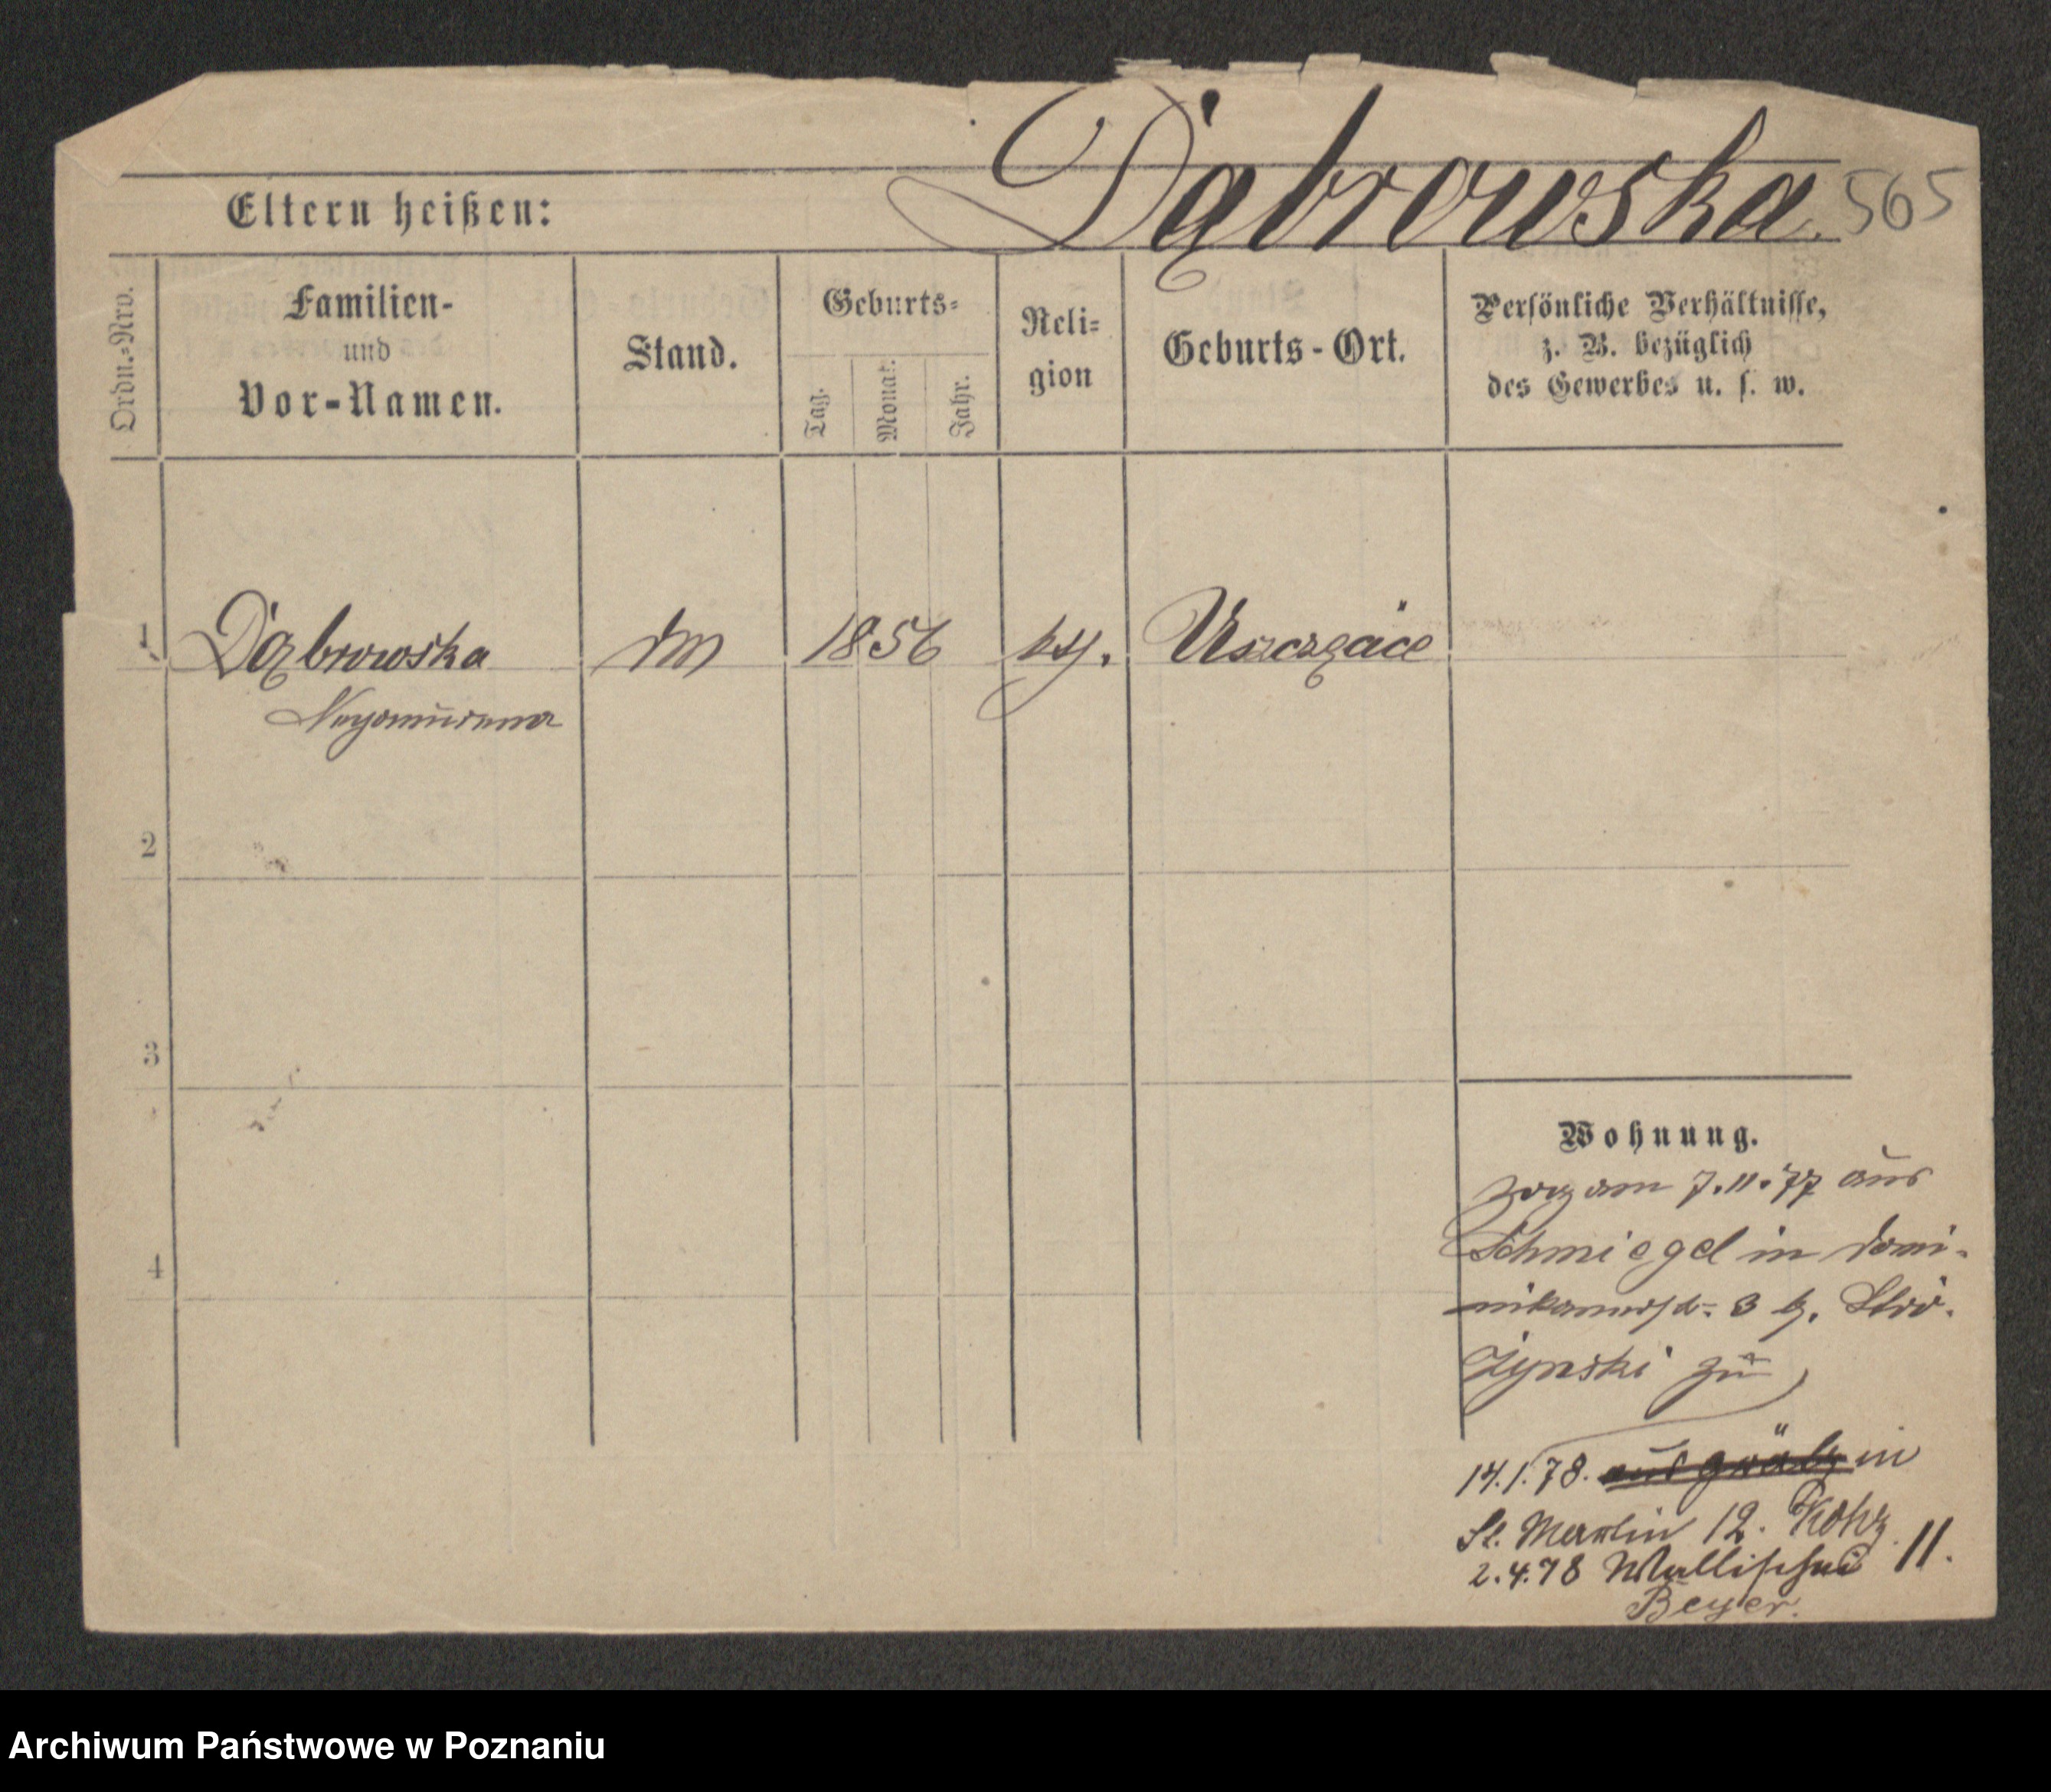 Dąbrowska. 565
Eltern heißen:
Ordn.=Nro.
Familien-
und
Vor-Namen.
Stand.
Geburts=
Tag.
Monat.
Jahr.
Reli=
gion
Geburts-Ort.
Persönliche Verhältnisse,
z. B. bezüglich
des Gewerbes u. s. w.
1 Dąbrowska 1856 Uszczęcice
2
3
4
Wohnung.
zog am 7.11.77 aus
Schmiegel in Domi-
nikanerstr. 3 b. Stró-
żynski zu
14.1.78. aus Grätz in
St. Martin 12.
2.4.78 Wallischei 11.
Beyer.
Archiwum Państwowe w Poznaniu